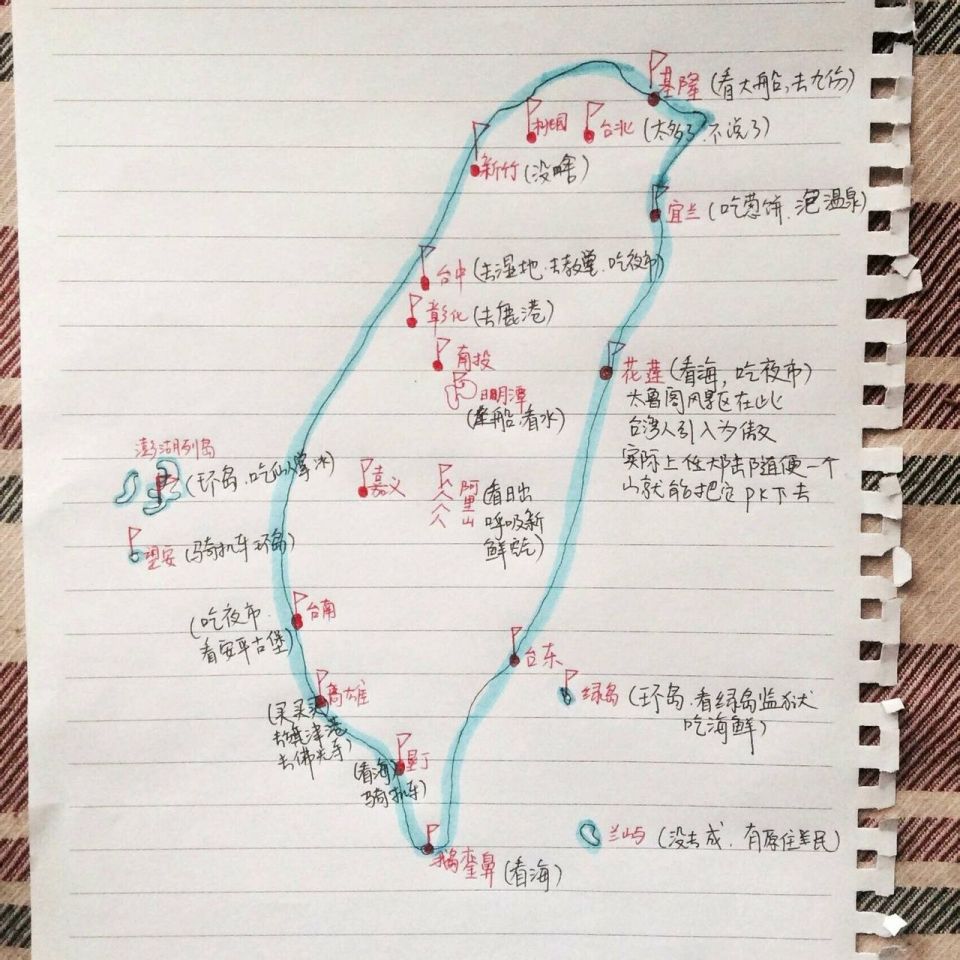 基隆 (看大船,去九份)
桃园
台北 (太多了,不说了)
新竹 (没啥)
宜兰 (吃葱饼.泡温泉)
台中 (去湿地.去教堂.吃夜市)
彰化 (去鹿港)
南投
日月潭
(坐船,看水)
花莲 (看海,吃夜市)
太鲁阁风景区在此
台湾人引入为傲
实际上任大陆随便一个
山就能把它PK下去
澎湖列岛
(环岛.吃仙人掌冰)
嘉义
阿里山
(看日出
呼吸新
鲜空气)
望安 (骑机车环岛)
台南
(吃夜市.
看安平古堡)
台东
绿岛 (环岛.看绿岛监狱
吃海鲜)
高雄
(买买买
去旗津港
去佛光寺)
垦丁
(看海)
骑机车)
兰屿 (没去成,有原住民)
鹅銮鼻 (看海)